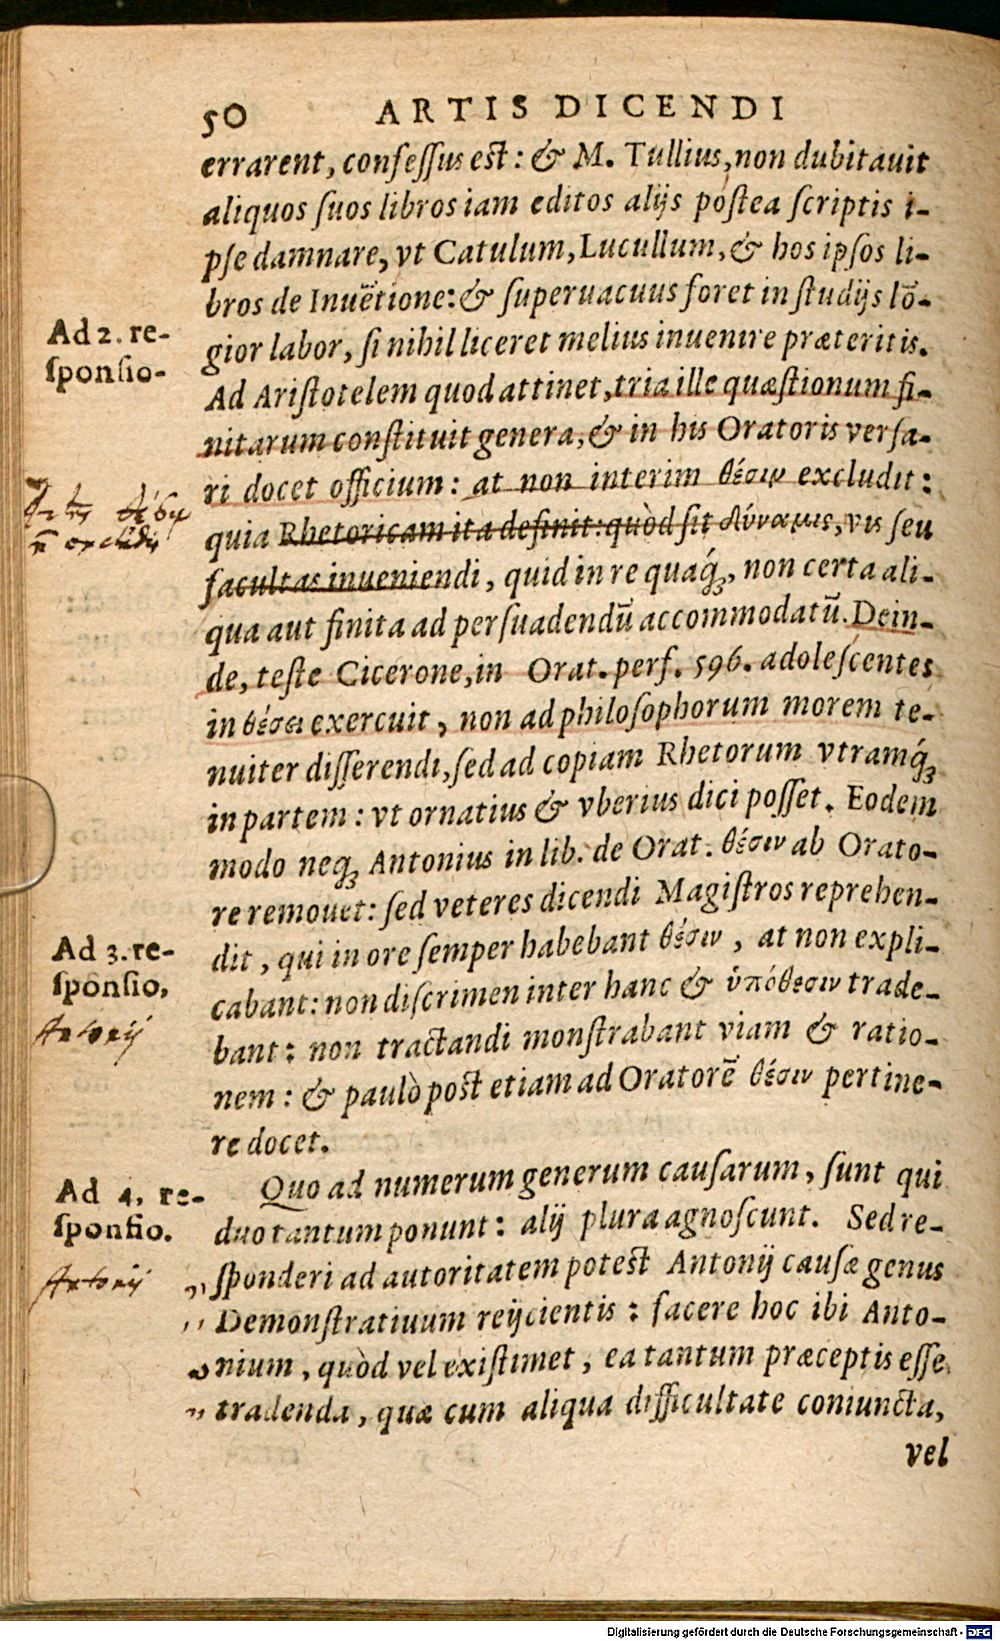 50 ARTIS DICENDI
errarent, confessus est: & M. Tullius, non dubitauit
aliquos suos libros iam editos alijs postea scriptis i-
pse damnare, vt Catulum, Lucullum, & hos ipsos li-
bros de Inuētione: & superuacuus foret in studijs lō-
Ad 2. re-
sponsio-
gior labor, si nihil liceret melius inuenire præteritis.
Ad Aristotelem quod attinet, tria ille quæstionum fi-
nitarum constituit genera, & in his Oratoris versa-
ri docet officium: at non interim θέσιν excludit:
quia Rhetoricam ita definit: quòd sit δύναμις, vis seu
facultas inueniendi, quid in re quaq́ꝫ, non certa ali-
qua aut finita ad persuadendū accommodatū. Dein-
de, teste Cicerone, in Orat. perf. 596. adolescentes
in θέσει exercuit, non ad philosophorum morem te-
nuiter disserendi, sed ad copiam Rhetorum vtramq́ꝫ
in partem: vt ornatius & vberius dici posset. Eodem
modo neqꝫ Antonius in lib. de Orat. θέσιν ab Orato-
re remouet: sed veteres dicendi Magistros reprehen-
Ad 3. re-
sponsio,
Antonij
dit, qui in ore semper habebant θέσιν, at non expli-
cabant: non discrimen inter hanc & ὑπόθεσιν trade-
bant: non tractandi monstrabant viam & ratio-
nem: & paulò post etiam ad Oratorē θέσιν pertine-
re docet.
Ad 4. re-
sponsio.
Antonij
Quo ad numerum generum causarum, sunt qui
duo tantum ponunt: alij plura agnoscunt. Sed re-
sponderi ad autoritatem potest Antonij causæ genus
Demonstratiuum reijcientis: facere hoc ibi Anto-
nium, quòd vel existimet, ea tantum præceptis esse
tradenda, quæ cum aliqua difficultate coniuncta,
vel
Digitalisierung gefördert durch die Deutsche Forschungsgemeinschaft - DFG